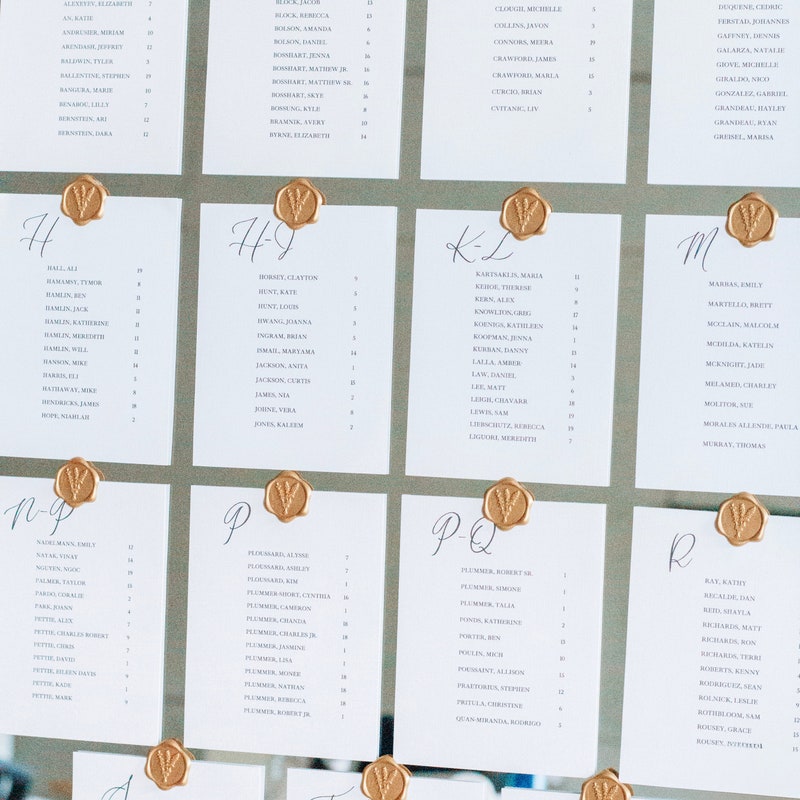 ALEXEYEV, ELIZABETH 7
AN, KATIE 4
ANDRUSIER, MIRIAM 10
ARENDASH, JEFFREY 12
BALDWIN, TYLER 3
BALLENTINE, STEPHEN 19
BANGURA, MARIE 10
BENABOU, LILLY 7
BERNSTEIN, ARI 12
BERNSTEIN, DARA 12
BLOCK, JACOB 13
BLOCK, REBECCA 13
BOLSON, AMANDA 6
BOLSON, DANIEL 6
BOSSHART, JENNA 16
BOSSHART, MATHEW JR. 16
BOSSHART, MATTHEW SR. 16
BOSSHART, SKYE 16
BOSSUNG, KYLE 8
BRAMNIK, AVERY 10
BYRNE, ELIZABETH 14
CLOUGH, MICHELLE 5
COLLINS, JAVON 3
CONNORS, MEERA 19
CRAWFORD, JAMES 15
CRAWFORD, MARLA 15
CURCIO, BRIAN 3
CVITANIC, LIV 5
DUQUENE, CEDRIC
FERSTAD, JOHANNES
GAFFNEY, DENNIS
GALARZA, NATALIE
GIOVE, MICHELLE
GIRALDO, NICO
GONZALEZ, GABRIEL
GRANDEAU, HAYLEY
GRANDEAU, RYAN
GREISEL, MARISA
H
HALL, ALI 19
HAMAMSY, TYMOR 8
HAMLIN, BEN 11
HAMLIN, JACK 11
HAMLIN, KATHERINE 11
HAMLIN, MEREDITH 11
HAMLIN, WILL 11
HANSON, MIKE 14
HARRIS, ELI 5
HATHAWAY, MIKE 8
HENDRICKS, JAMES 18
HOPE, NIAHLAH 2
H-J
HORSEY, CLAYTON 9
HUNT, KATE 5
HUNT, LOUIS 5
HWANG, JOANNA 3
INGRAM, BRIAN 5
ISMAIL, MARYAMA 14
JACKSON, ANITA 1
JACKSON, CURTIS 15
JAMES, NIA 2
JOHNE, VERA 8
JONES, KALEEM 2
K-L
KARTSAKLIS, MARIA 11
KEHOE, THERESE 9
KERN, ALEX 8
KNOWLTON, GREG 17
KOENIGS, KATHLEEN 14
KOOPMAN, JENNA 1
KURBAN, DANNY 13
LALLA, AMBER 14
LAW, DANIEL 3
LEE, MATT 6
LEIGH, CHAVARR 18
LEWIS, SAM 19
LIEBSCHUTZ, REBECCA 19
LIGUORI, MEREDITH 7
M
MARBAS, EMILY
MARTELLO, BRETT
MCCLAIN, MALCOLM
MCDILDA, KATELIN
MCKNIGHT, JADE
MELAMED, CHARLEY
MOLITOR, SUE
MORALES ALLENDE, PAULA
MURRAY, THOMAS
N-P
NADELMANN, EMILY 12
NAYAK, VINAY 14
NGUYEN, NGOC 19
PALMER, TAYLOR 16
PARDO, CORALIE 2
PARK, JOANN 4
PETTIE, ALEX 7
PETTIE, CHARLES ROBERT 9
PETTIE, CHRIS 7
PETTIE, DAVID 1
PETTIE, EILEEN DAVIS 9
PETTIE, KADE 1
PETTIE, MARK 9
P
PLOUSSARD, ALYSSE 7
PLOUSSARD, ASHLEY 7
PLOUSSARD, KIM 1
PLUMMER-SHORT, CYNTHIA 16
PLUMMER, CAMERON 1
PLUMMER, CHANDA 18
PLUMMER, CHARLES JR. 18
PLUMMER, JASMINE 1
PLUMMER, LISA 1
PLUMMER, MONEE 18
PLUMMER, NATHAN 18
PLUMMER, REBECCA 18
PLUMMER, ROBERT JR. 1
P-Q
PLUMMER, ROBERT SR. 1
PLUMMER, SIMONE 1
PLUMMER, TALIA 1
PONDS, KATHERINE 2
PORTER, BEN 13
POULIN, MICH 10
POUSSAINT, ALLISON 15
PRAETORIUS, STEPHEN 12
PRITULA, CHRISTINE 6
QUAN-MIRANDA, RODRIGO 5
R
RAY, KATHY
RECALDE, DAN
REID, SHAYLA
RICHARDS, MATT
RICHARDS, RON
RICHARDS, TERRI
ROBERTS, KENNY
RODRIGUEZ, SEAN
ROLNICK, LESLIE 9
ROTHBLOOM, SAM 12
ROUSEY, GRACE 15
ROUSEY, 15